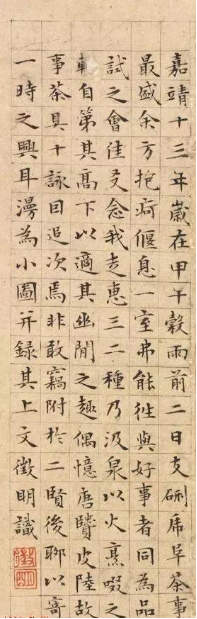 嘉靖十三年歲在甲午穀雨前二日支硎虎阜茶事
最盛余方抱疴偃息一室弗能往與好事者同為品
試之會佳友念我走惠三二種乃汲泉以火烹啜之
輒自第其高下以適其幽閒之趣偶憶唐賢皮陸故
事茶具十詠因追次焉非敢竊附於二賢後聊以寄
一時之興耳漫為小圖并錄其上文徵明識